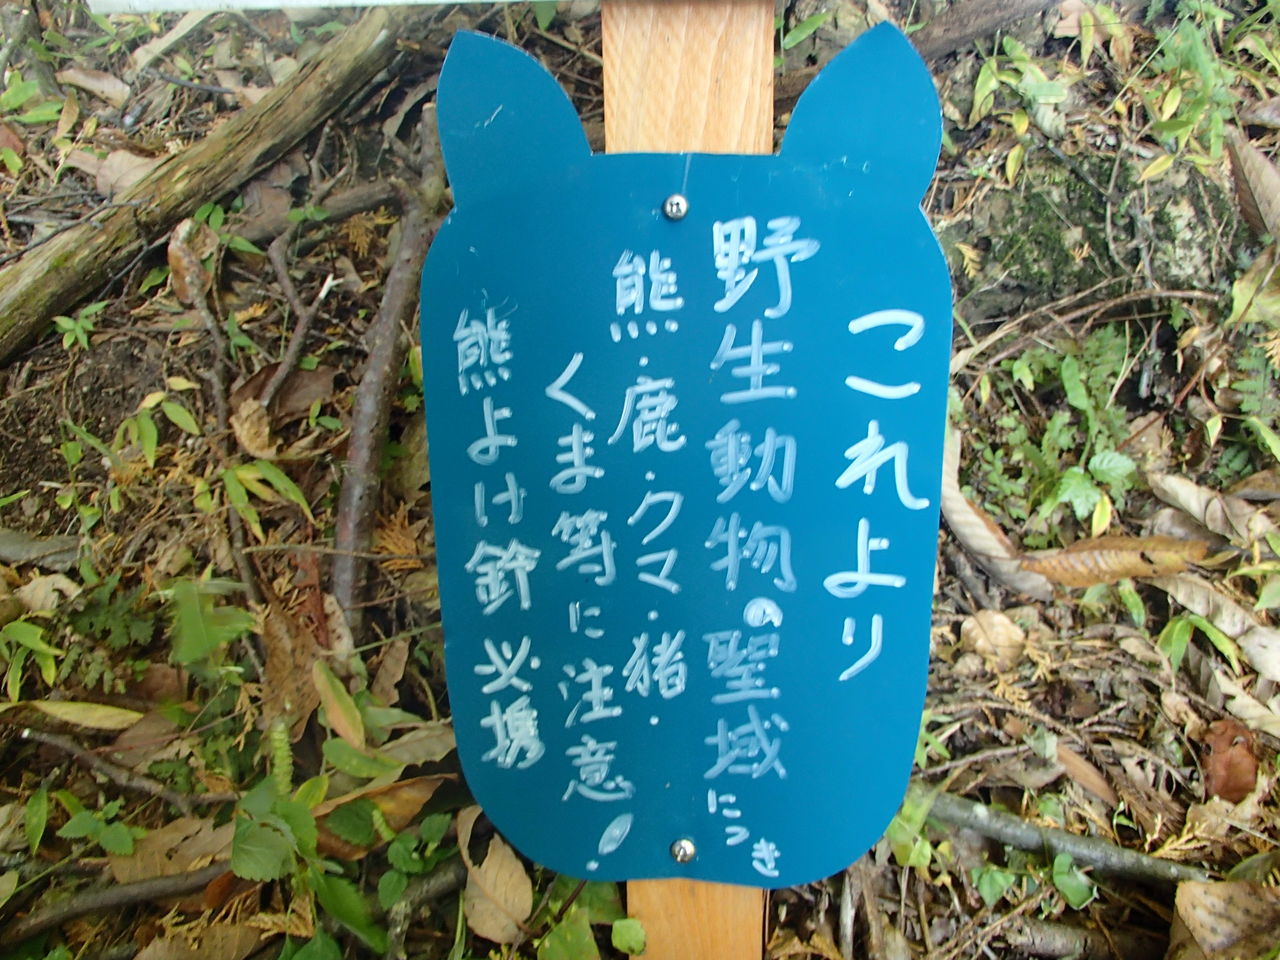 これより
野生動物の聖域につき
熊・鹿・クマ・猪・
くま等に注意!
熊よけ鈴必携